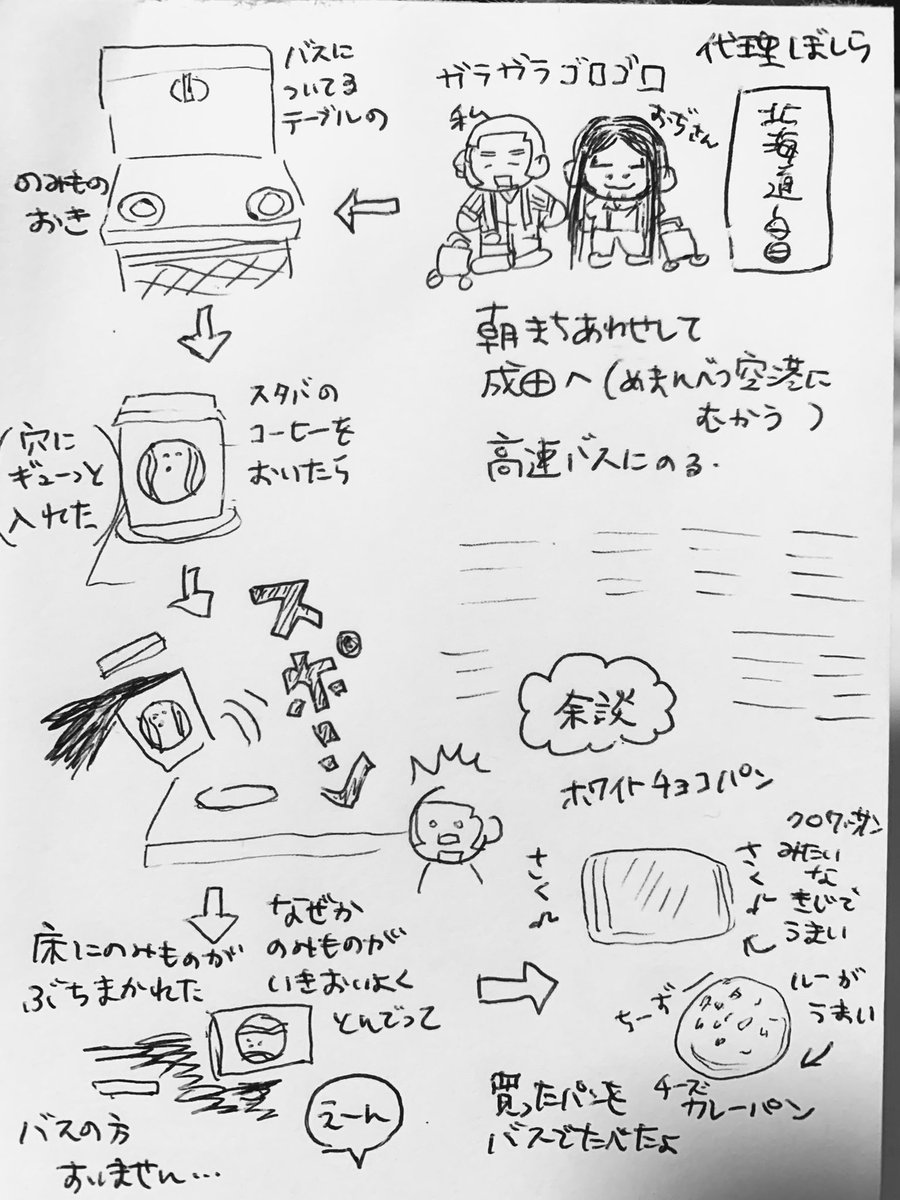 代理ぼしら
北海道①日目
ガラガラゴロゴロ
私
おぢさん
朝まちあわせして
成田へ(めまんべつ空港に
むかう)
高速バスにのる.
バスに
ついてる
テーブルの
のみもの
おき
スタバの
コーヒーを
おいたら
(穴に
ギューっと
入れた)
スポーン
なぜか
のみものが
いきおいよく
とんでって
床にのみものが
ぶちまかれた
えーん
バスの方
すいません…
余談
ホワイトチョコパン
さく
さく
クロワッサン
みたい
な
きじで
うまい
ルーが
うまい
ちーず
チーズ
カレーパン
買ったパンを
バスでたべたよ